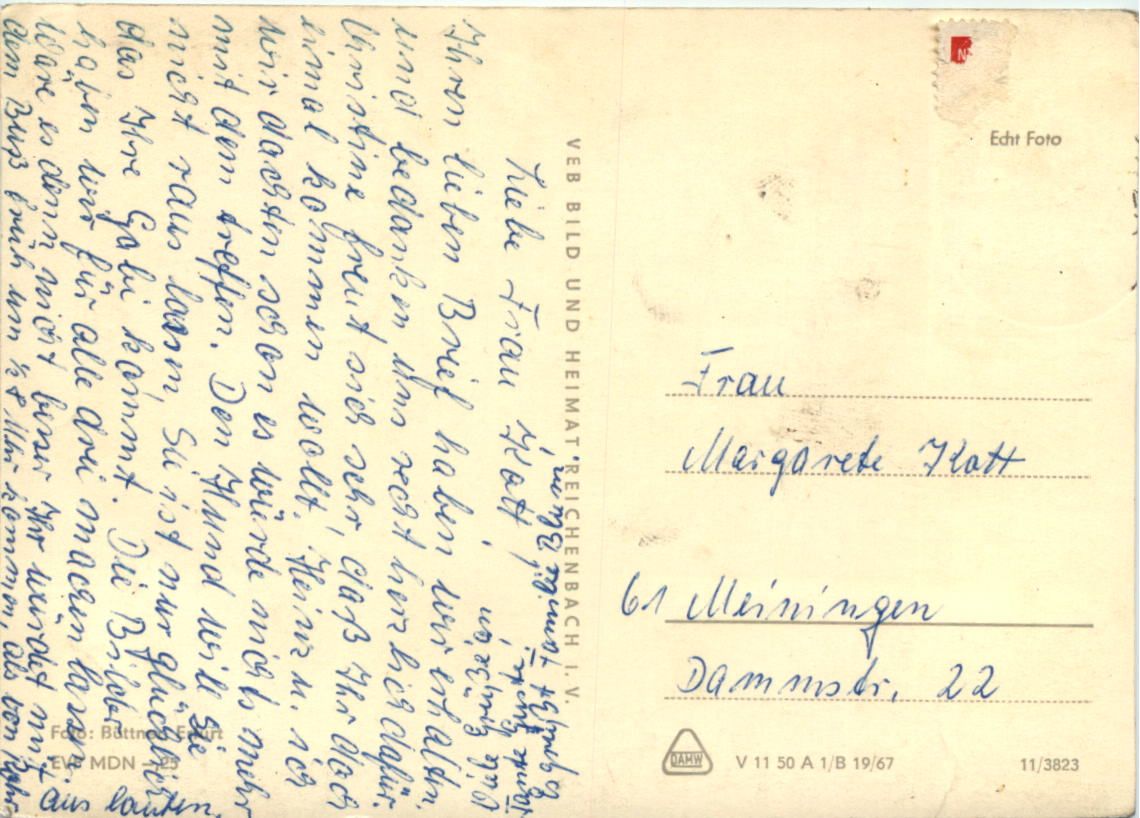 Liebe Frau Kott,
Ihren lieben Brief haben wir erhalten
und bedanken uns recht herzlich dafür.
Christine freut sich sehr, daß Ihr doch
einmal kommen wollt.
wir dachten schon es würde nichts mehr
mit dem treffen. Den Hund will Sie
nicht raus lassen, Sie ist nur glücklich
das Ihre Gabi kommt. Die Bilder
haben wir für alle drei machen lassen.
Wäre es denn nicht besser Ihr würdet mit
dem Buß früh um ½ 8 Uhr kommen, als von
aus laufen,
Viele Grüße
VEB BILD UND HEIMAT REICHENBACH I. V.
Foto: Büttner, Erfurt
EVP MDN –,25
Echt Foto
Frau
Margarete Kott
61 Meiningen
Dammstr. 22
DAMW
V 11 50 A 1/B 19/67
11/3823